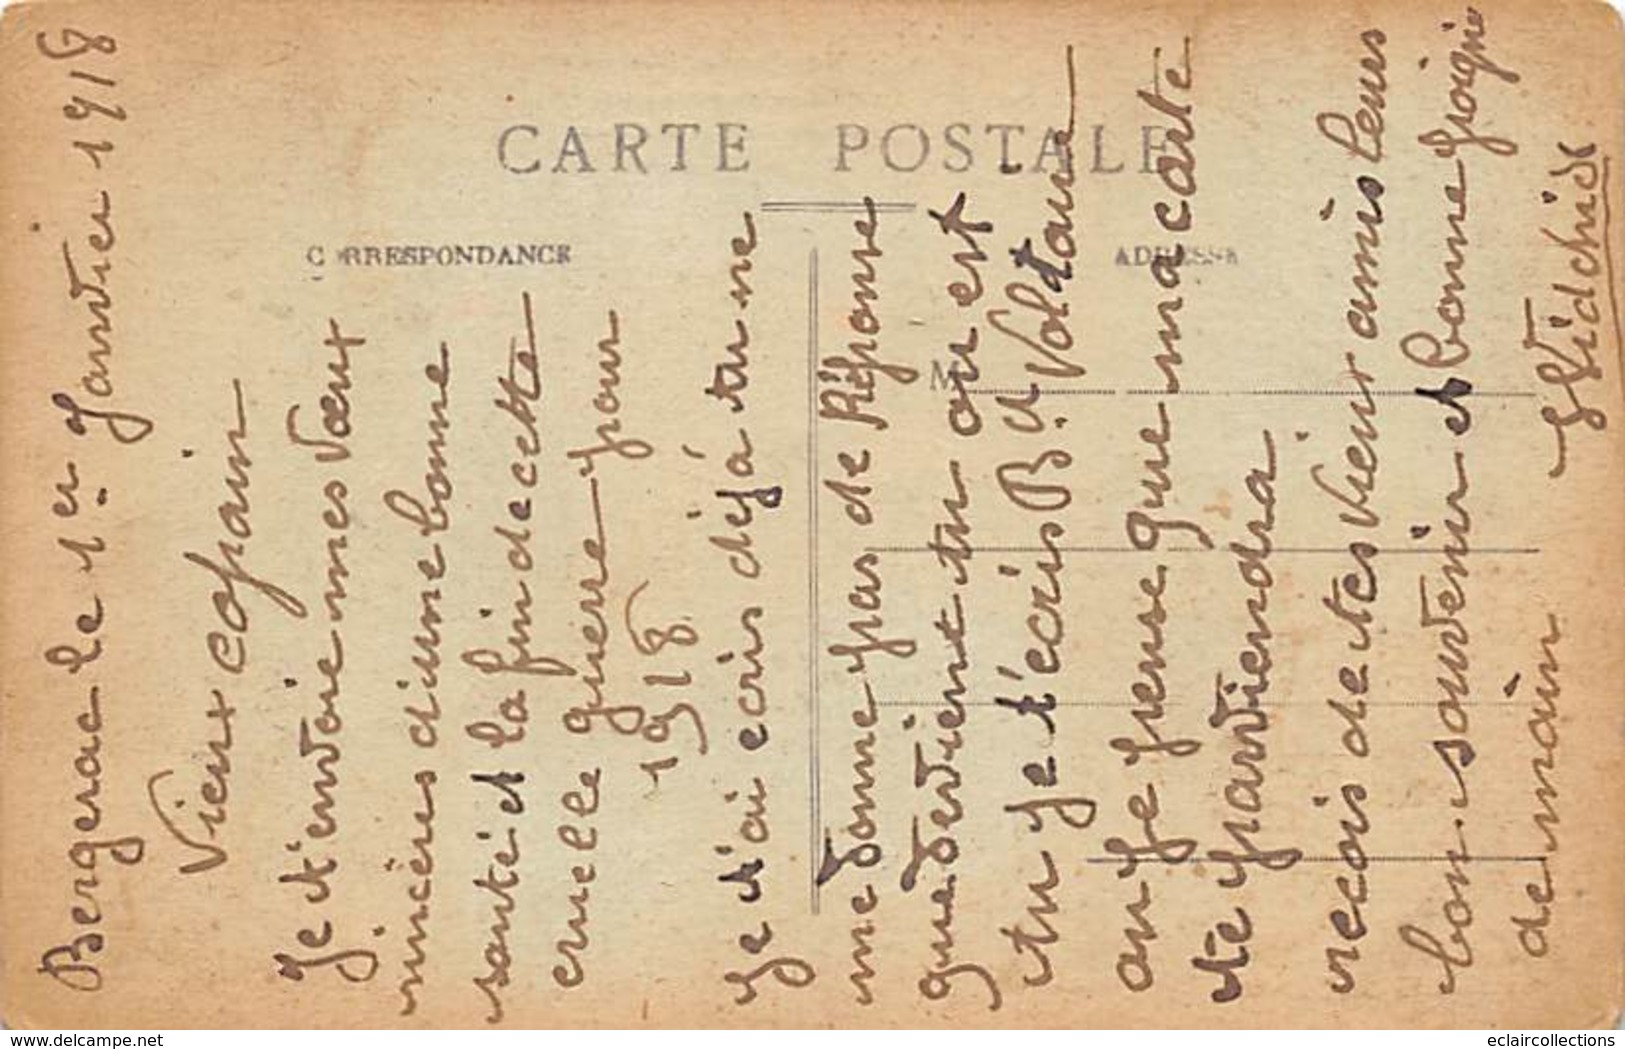 CARTE POSTALE
CORRESPONDANCE
ADRESSE
M
Bergerac le 1er Janvier 1918
Vieux copain
Je t'envoie mes vœux
sincères d'une bonne
santé et la fin de cette
cruelle guerre pour
1918
Je t'ai ecris déjà tu ne
me donne pas de Réponse
que devient tu ou est
tu je t'écris Bd Voltaire
ou je pense que ma carte
te parviendra
recois de tes vieux amis leurs
bon souvenir et bonne poigné
de main
delcampe.net
eclaircollections